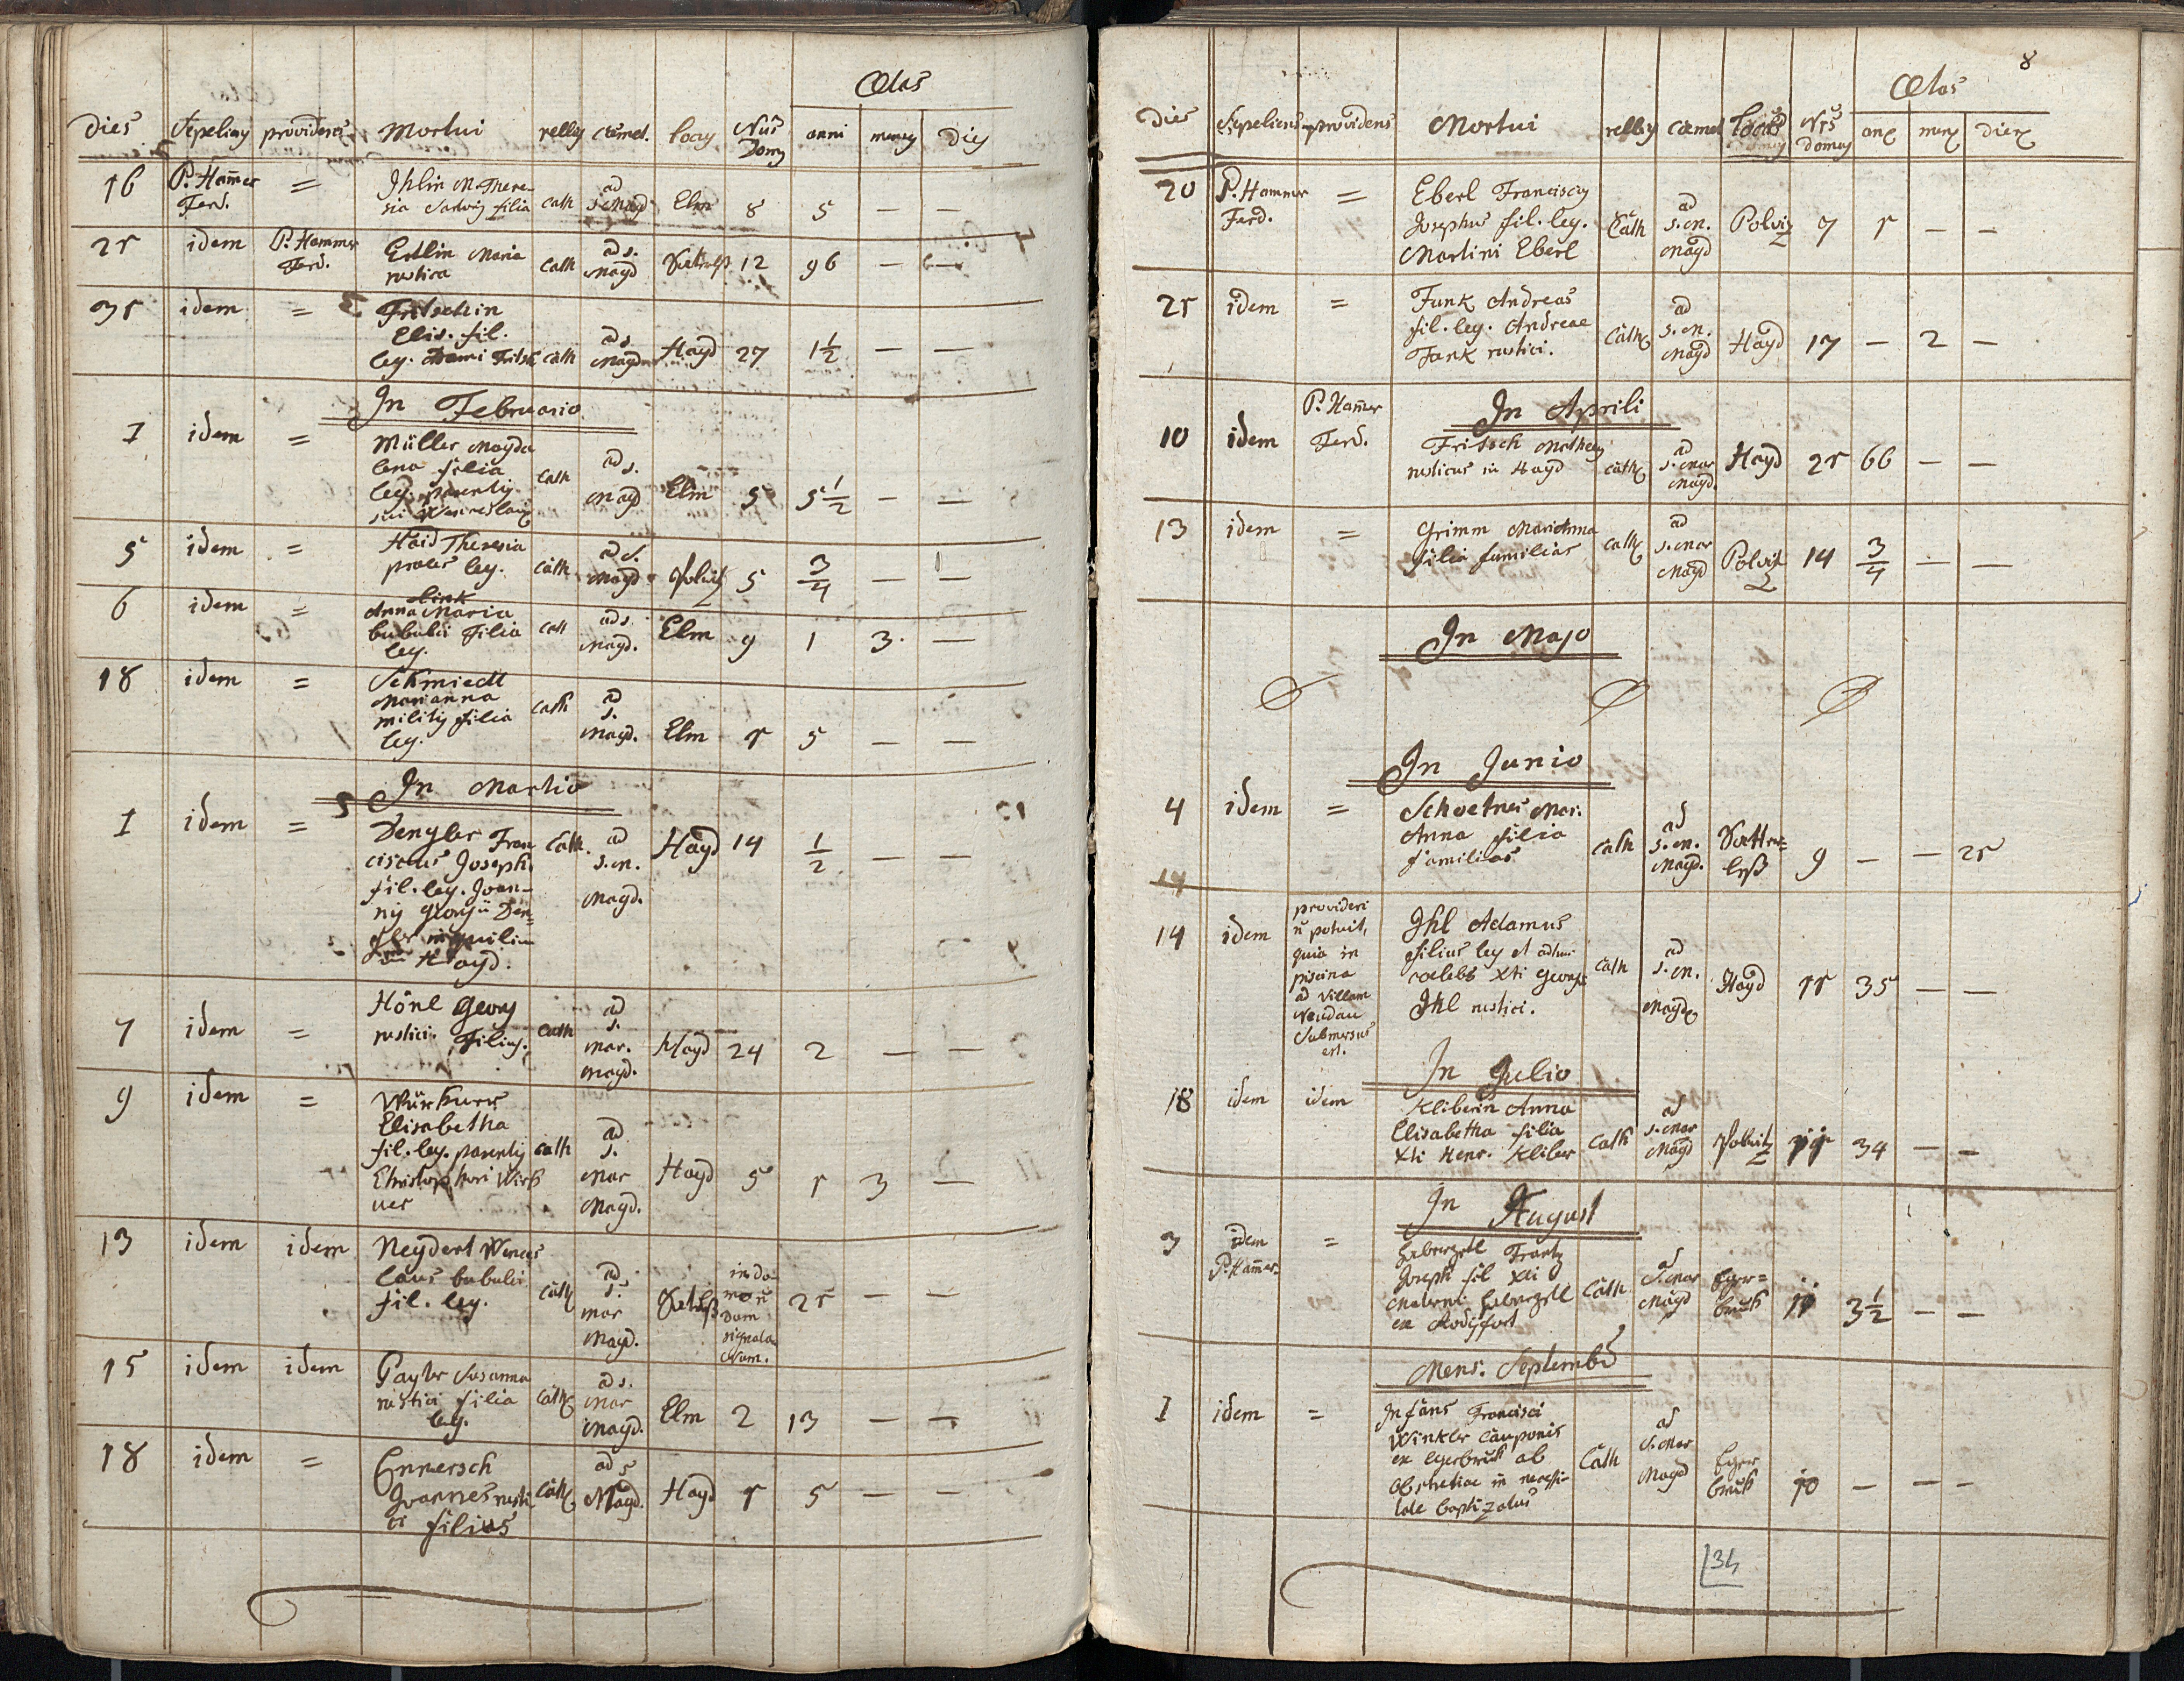 Ætas
Dies Sepeliens providens Mortui relig cæmet. locus Nus Domus anni menses dies
16 P. Ham̄er Ferd. = Ihlin M. There-
sia filia cath ad S. Magd Elm 8 5 — —
21 idem P. Hammer Ferd. Ertlin Maria
rustica cath ad S. Magd 12 96 — —
31 idem = Fritschin
Elis. fil.
leg. Fritsch cath ad S. Magd Hayd 27 1½ — —
In Februario
1 idem = Müller Magda
lena filia
leg. parentis
sui Wenceslai cath ad S. Magd Elm 5 5½ — —
5 idem = Haid Theresia
proles leg. cath ad S. Magd Polvitz 5 3/4 — —
6 idem = Link
Anna Maria
bubulci filia
leg. cath ad S. Magd. Elm 9 1 3 —
18 idem = Schmiedl
Marianna
militis filia
leg. cath ad S. Magd. Elm 1 5 — —
In Martio
1 idem = Dengler Fran
ciscus Joseph
fil. leg. Joan-
nis Georgii Den=
gler inquilini
in Hayd. cath. ad S. M. Magd. Hayd 14 ½ — —
7 idem = Hönl Georg
rustici filius. cath ad S. Mar. Magd. Hayd 24 2 — —
9 idem =
Elisabetha
fil. leg. parentis
Christophori Wirk
ner cath ad S. Mar Magd. Hayd 5 1 3 —
13 idem idem Neydert Wences
laus bubulci
fil. leg. cath ad S. Mar Magd. in do-
mo n̄
dum
signata
Num. 21 — —
15 idem idem Gayler Susanna
rustici filia
leg. cath ad S. Mar Magd. Elm 2 13 — —
18 idem = Ennersch
Joannes rusti
ci filius cath ad S Magd. Hayd 1 5 — —
8
Ætas
Dies Sepeliens providens Mortui relig cæmet locus Nrs Domus
20 P. Hammer Ferd. = Eberl Franciscus
Josephus fil. leg.
Martini Eberl cath ad S. M. Magd Polviz 7 1 — —
21 idem = Funk Andreas
fil. leg. Andreae
Funk rustici. cath ad S. M. Magd Hayd 17 — 2 —
In Aprili
10 idem P. Ham̄er Ferd. Fritsch Matheus
rusticus in Hayd cath ad S. Mar Magd. Hayd 21 66 — —
13 idem = Grimm MariAnna
filia familias cath ad S. Mar Magd Polvitz 14 3/4 — —
In Majo
In Junio
4 idem = Schoetner Mar.
Anna filia
familias cath ad S. M. Magd. 9 — — 21
14
14 idem provideri
n̄ potuit,
quia in
piscina
ad villam
Neudau
submersus
est. Ihl Adamus
filius leg et adhuc
coelebs Xti Georgii
Ihl rustici. cath ad S. M. Magd Hayd 11 35 — —
In Julio
18 idem idem Kliberin Anna
Elisabetha filia
Xti Henr. Kliber cath ad S. Mar Magd Polvitz 11 34 — —
In August
3 idem P. Ham̄er. = Haberzetl Frantz
Joseph fil Xti
Haberzetl
ex cath ad S. Mar Magd Eger=
bruk 11 3½ — —
Mens. Septembr
1 idem = Infans Francisci
Winkler cauponis
ex Egerbruk ab
obstetrice in necessi-
tate baptizatus cath ad S. Mar Magd Eger
bruk 10 — — —
34